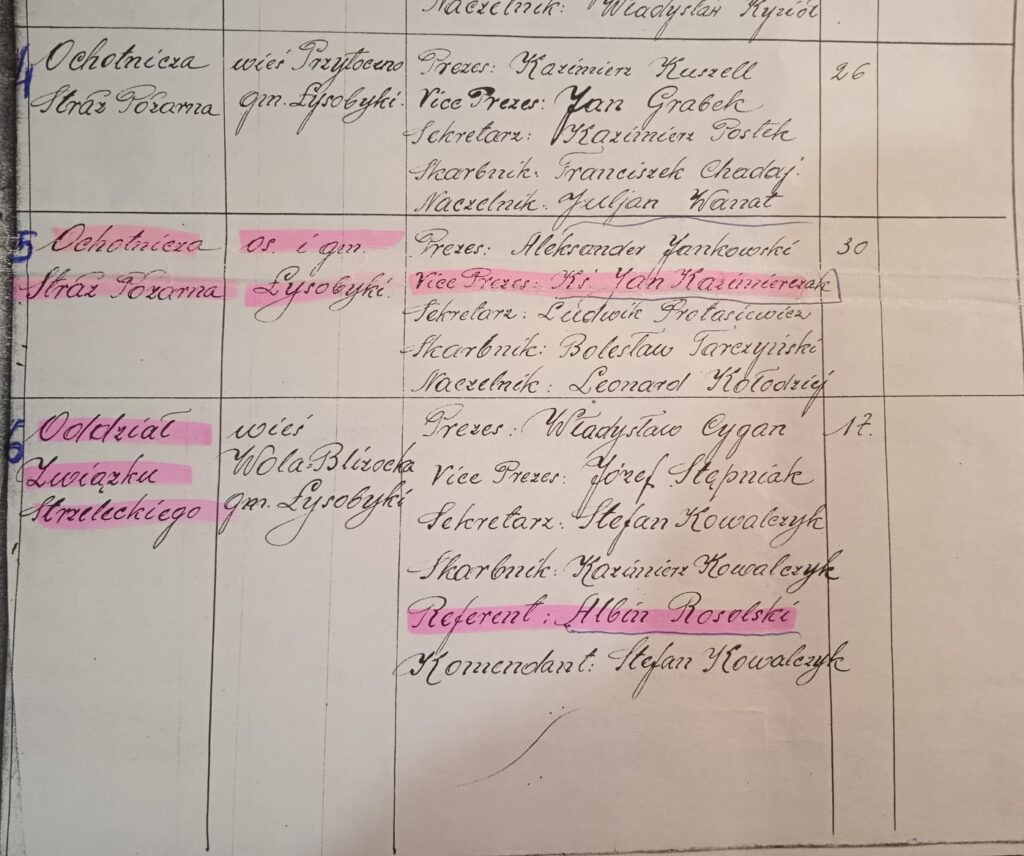 Naczelnik: Władysław Kyzioł
4 Ochotnicza wieś Przytoczno Prezes: Kazimierz Kuszell 26
Straż Pożarna gm. Łysobyki. Vice Prezes: Jan Grabek
Sekretarz: Kazimierz Postek
Skarbnik: Franciszek Chadaj.
Naczelnik: Juljan Kanat
5 Ochotnicza os. i gm. Prezes: Aleksander Jankowski 30
Straż Pożarna Łysobyki. Vice Prezes: Ks. Jan Kazimierczak
Sekretarz: Ludwik Protasiewicz
Skarbnik: Bolesław Tarczyński
Naczelnik: Leonard Kołodziej
6 Oddział wieś Prezes: Władysław Cygan 17.
Związku Wola-Blizocka Vice Prezes: Józef Stępniak
Strzeleckiego gm. Łysobyki Sekretarz: Stefan Kowalczyk
Skarbnik: Kazimierz Kowalczyk
Referent: Albin Rosolski
Komendant: Stefan Kowalczyk